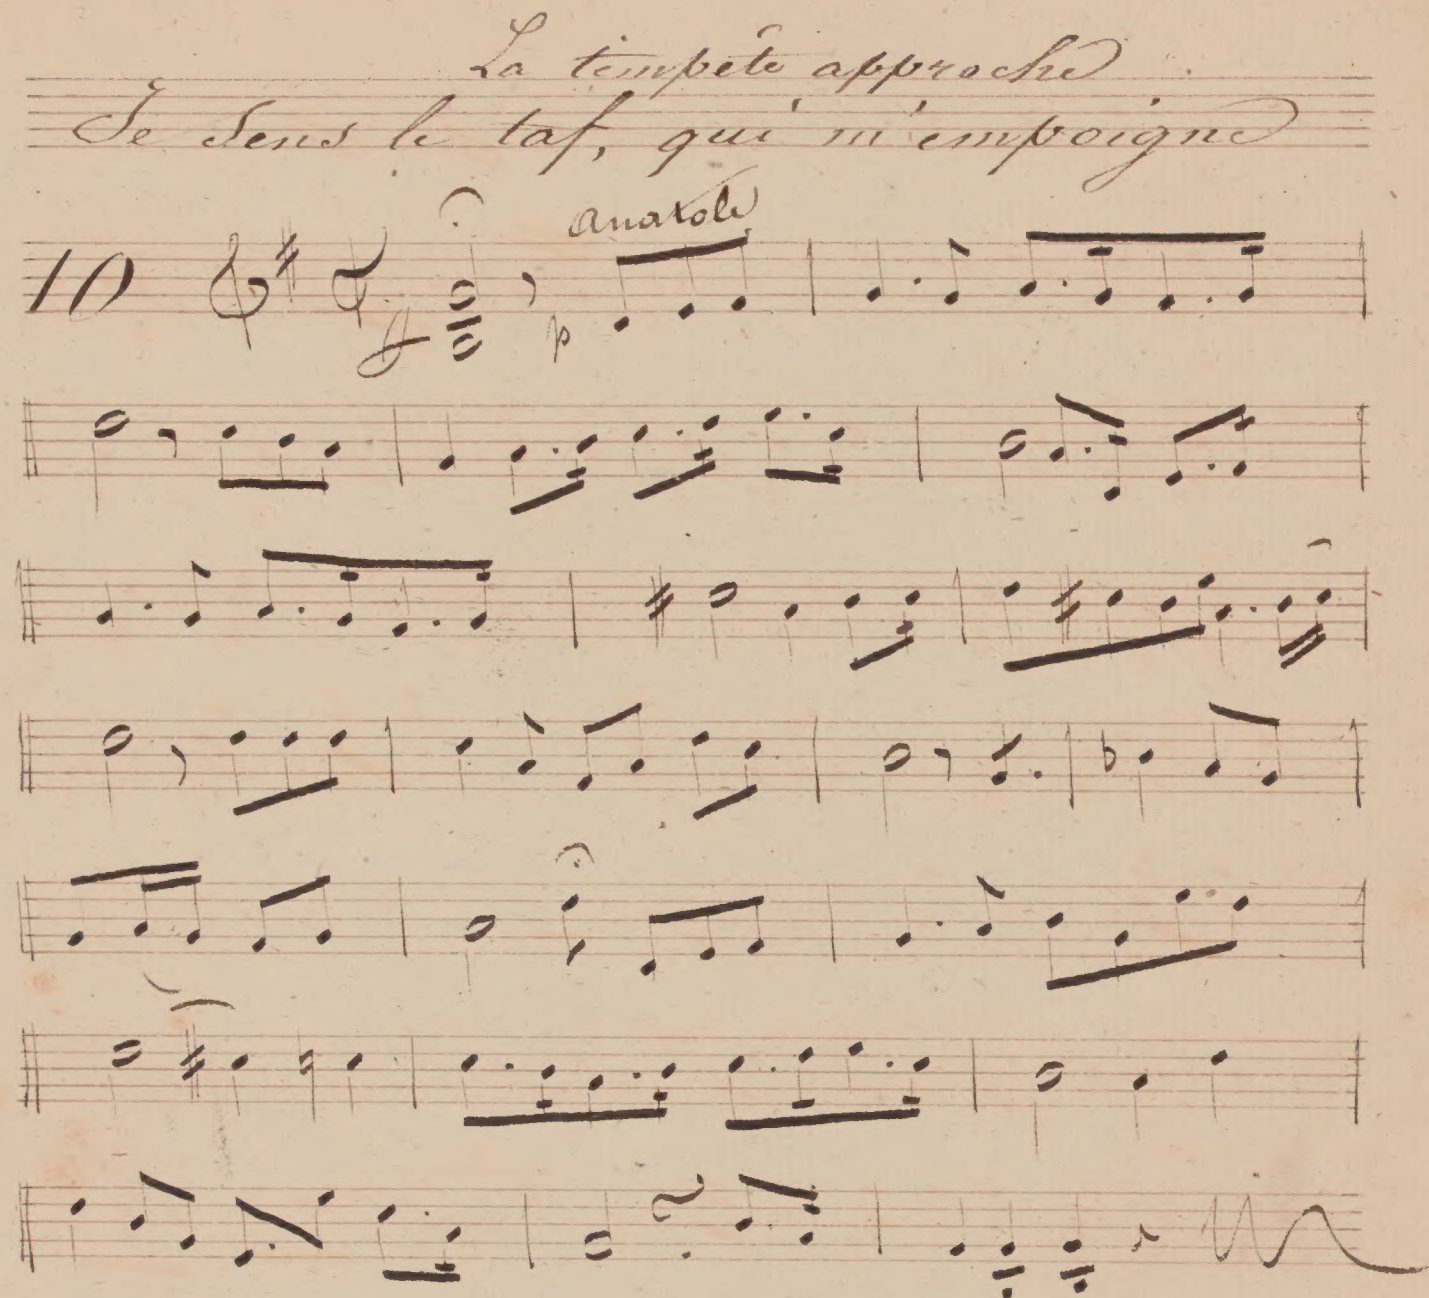 La tempête approche
Je Sens le taf, qui m'empoigne
anatole
10
ff p